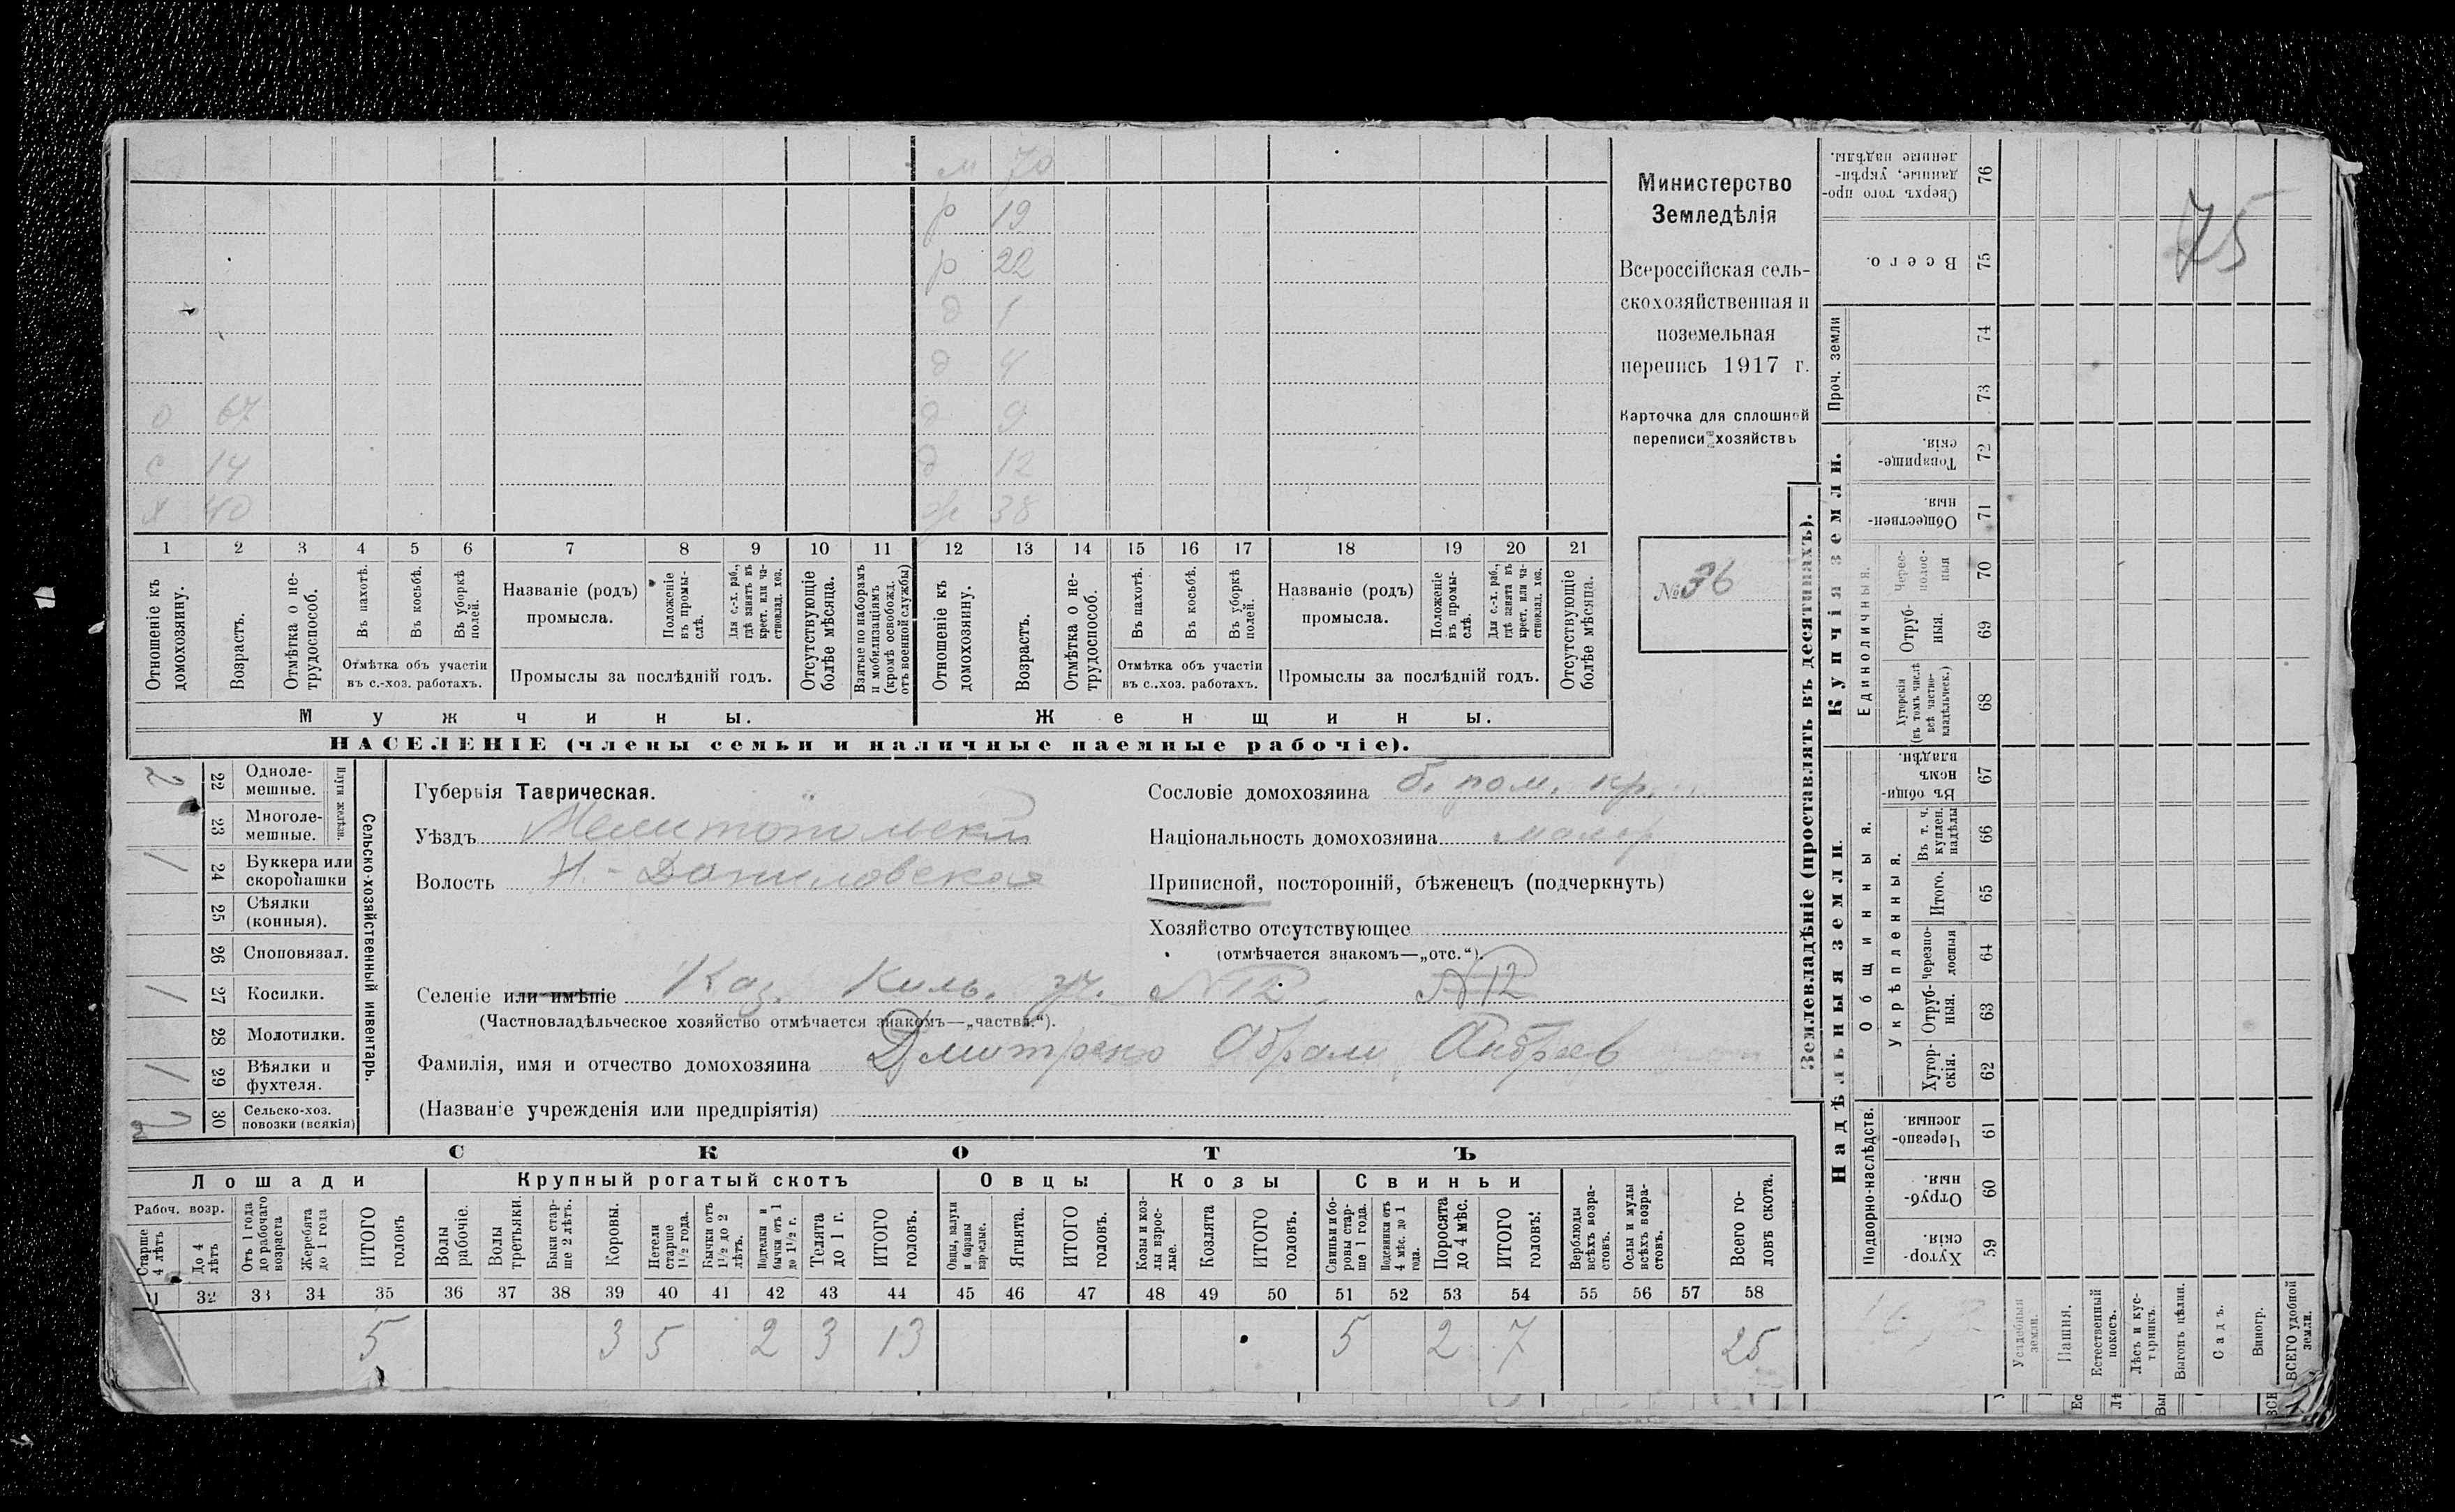 м 70
р 19
р 22
д 1
д 4
о 67 д 9
с 14 д 12
х 40 ж 38
1 2 3 4 5 6 7 8 9 10 11 12 13 14 15 16 17 18 19 20 21
Отношеніе къ домохозяину.
Возрастъ.
Отмѣтка о не-
трудоспособ.
Въ пахотѣ.
Въ косьбѣ.
Въ уборкѣ
полей.
Отмѣтка объ участіи
въ с.-хоз. работахъ.
Названіе (родъ)
промысла.
Положеніе
въ промы-
слѣ.
Для с.-х. раб.,
гдѣ занятъ въ
крест. или ча-
стновлад. хоз.
Промыслы за послѣдній годъ.
Отсутствующіе
болѣе мѣсяца.
Взятые по наборамъ
и мобилизаціямъ
(кромѣ освобожд.
отъ военной службы)
Отношеніе къ
домохозяину.
Возрастъ.
Отмѣтка о не-
трудоспособ.
Въ пахотѣ.
Въ косьбѣ.
Въ уборкѣ
полей.
Отмѣтка объ участіи
въ с..хоз. работахъ.
Названіе (родъ)
промысла.
Положеніе
въ промы-
слѣ.
Для с.-х. раб.,
гдѣ занята въ
крест. или ча-
стновлад. хоз.
Промыслы за послѣдній годъ.
Отсутствующіе
болѣе мѣсяца.
Мужчины. Женщины.
НАСЕЛЕНІЕ (члены семьи и наличные наемные рабочіе).
Министерство
Земледѣлія
Всероссійская сель-
скохозяйственная и
поземельная
перепись 1917 г.
Карточка для сплошной
переписи хозяйствъ
№ 36
75
Сельско-хозяйственный инвентарь.
Плуги желѣзн.
22 Одноле-
мешные. 2
23 Многоле-
мешные.
24 Буккера или
скоропашки 1
25 Сѣялки
(конныя).
26 Сноповязал.
27 Косилки. 1
28 Молотилки.
29 Вѣялки и
фухтеля. 1
30 Сельско-хоз.
повозки (всякія) 2
Губернія Таврическая.
Уѣздъ Мелитопольскій
Волость Н.-Даниловская
Сословіе домохозяина б. пом. кр.
Національность домохозяина малор
Приписной, посторонній, бѣженецъ (подчеркнуть)
Хозяйство отсутствующее
(отмѣчается знакомъ—„отс.“).
Селеніе или имѣніе Каз. Киль. уч. №12. №12
(Частновладѣльческое хозяйство отмѣчается знакомъ—„частвл.“).
Фамилія, имя и отчество домохозяина Дмитренко Абрам Андреев
(Названіе учрежденія или предпріятія)
СКОТЪ
Лошади Крупный рогатый скотъ Овцы Козы Свиньи
Рабоч. возр.
Старше
4 лѣтъ
До 4
лѣтъ
Отъ 1 года
до рабочаго
возраста
Жеребята
до 1 года
ИТОГО
головъ
Волы
рабочіе.
Волы
третьяки.
Быки стар-
ше 2 лѣтъ.
Коровы.
Нетели
старше
1½ года.
Бычки отъ
1½ до 2
лѣтъ.
Подтелки и
бычки отъ 1
до 1½ г.
Телята
до 1 г.
ИТОГО
головъ.
Овцы, валухи
и бараны
взрослые.
Ягнята.
ИТОГО
головъ.
Козы и коз-
лы взрос-
лые.
Козлята
ИТОГО
головъ.
Свиньи и бо-
ровы стар-
ше 1 года.
Подсвинки отъ
4 мѣс. до 1
года.
Поросята
до 4 мѣс.
ИТОГО
головъ.
Верблюды
всѣхъ возра-
стовъ.
Ослы и мулы
всѣхъ возра-
стовъ.
Всего го-
ловъ скота.
31 32 33 34 35 36 37 38 39 40 41 42 43 44 45 46 47 48 49 50 51 52 53 54 55 56 57 58
5 3 5 2 3 13 5 2 7 25
Землевладѣніе (проставлять въ десятинахъ).
Купчія земли.
Проч. земли
Единоличныя.
Надѣльныя земли.
Общинныя.
Укрѣпленныя.
Подворно-наслѣдств.
Сверхъ того про-
данные, укрѣп-
ленные надѣлы. 76
Всего. 75
74
73
Товарище-
скія. 72
Обществен-
ныя. 71
Черес-
полос-
ныя 70
Отруб-
ныя. 69
Хуторскія
(въ томъ числѣ
всѣ частно-
владѣльческ.) 68
Въ общи-
номъ
владѣн. 67
Въ т. ч.
куплен.
надѣлы 66
Итого. 65
Черезпо-
лосныя 64
Отруб-
ныя. 63
Хутор-
скія. 62
Черезпо-
лосныя 61
Отруб-
ныя. 60
Хутор-
скія. 59
Усадебныя
земли.
Пашня.
Естественный
покосъ.
Лѣсъ и кус-
тарникъ.
Выгонъ цѣлин.
Садъ.
Виногр.
ВСЕГО удобной
земли.